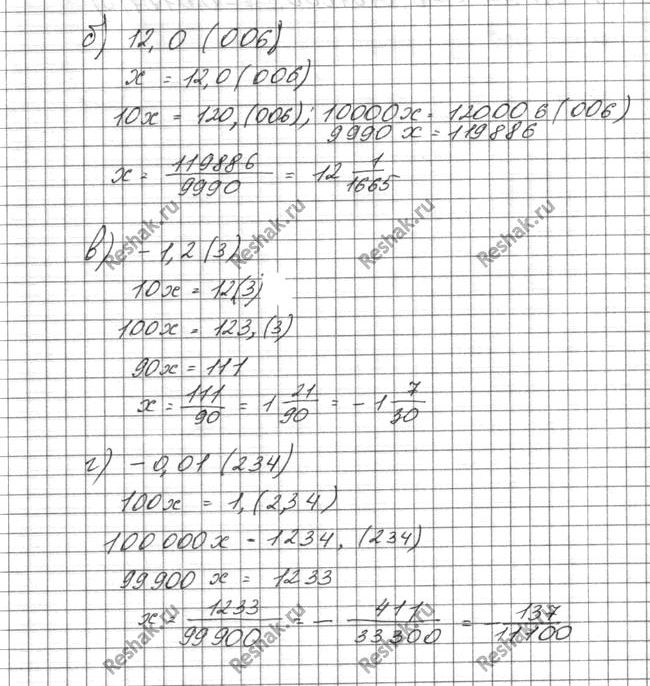 б) 12,0 (006)
x = 12,0 (006)
10x = 120,(006); 10000x = 120006(006)
9990 x = 119886
x = 119886/9990 = 12 1/1665
в) - 1,2 (3)
10x = 12(3)
100x = 123,(3)
90x = 111
x = 111/90 = 1 21/90 = - 1 7/30
г) - 0,01 (234)
100x = 1,(234)
100 000x - 1234, (234)
99900 x = 1233
x = 1233/99900 = - 411/33300 = - 137/11100
Reshak.ru Reshak.ru Reshak.ru Reshak.ru
Reshak.ru Reshak.ru Reshak.ru Reshak.ru